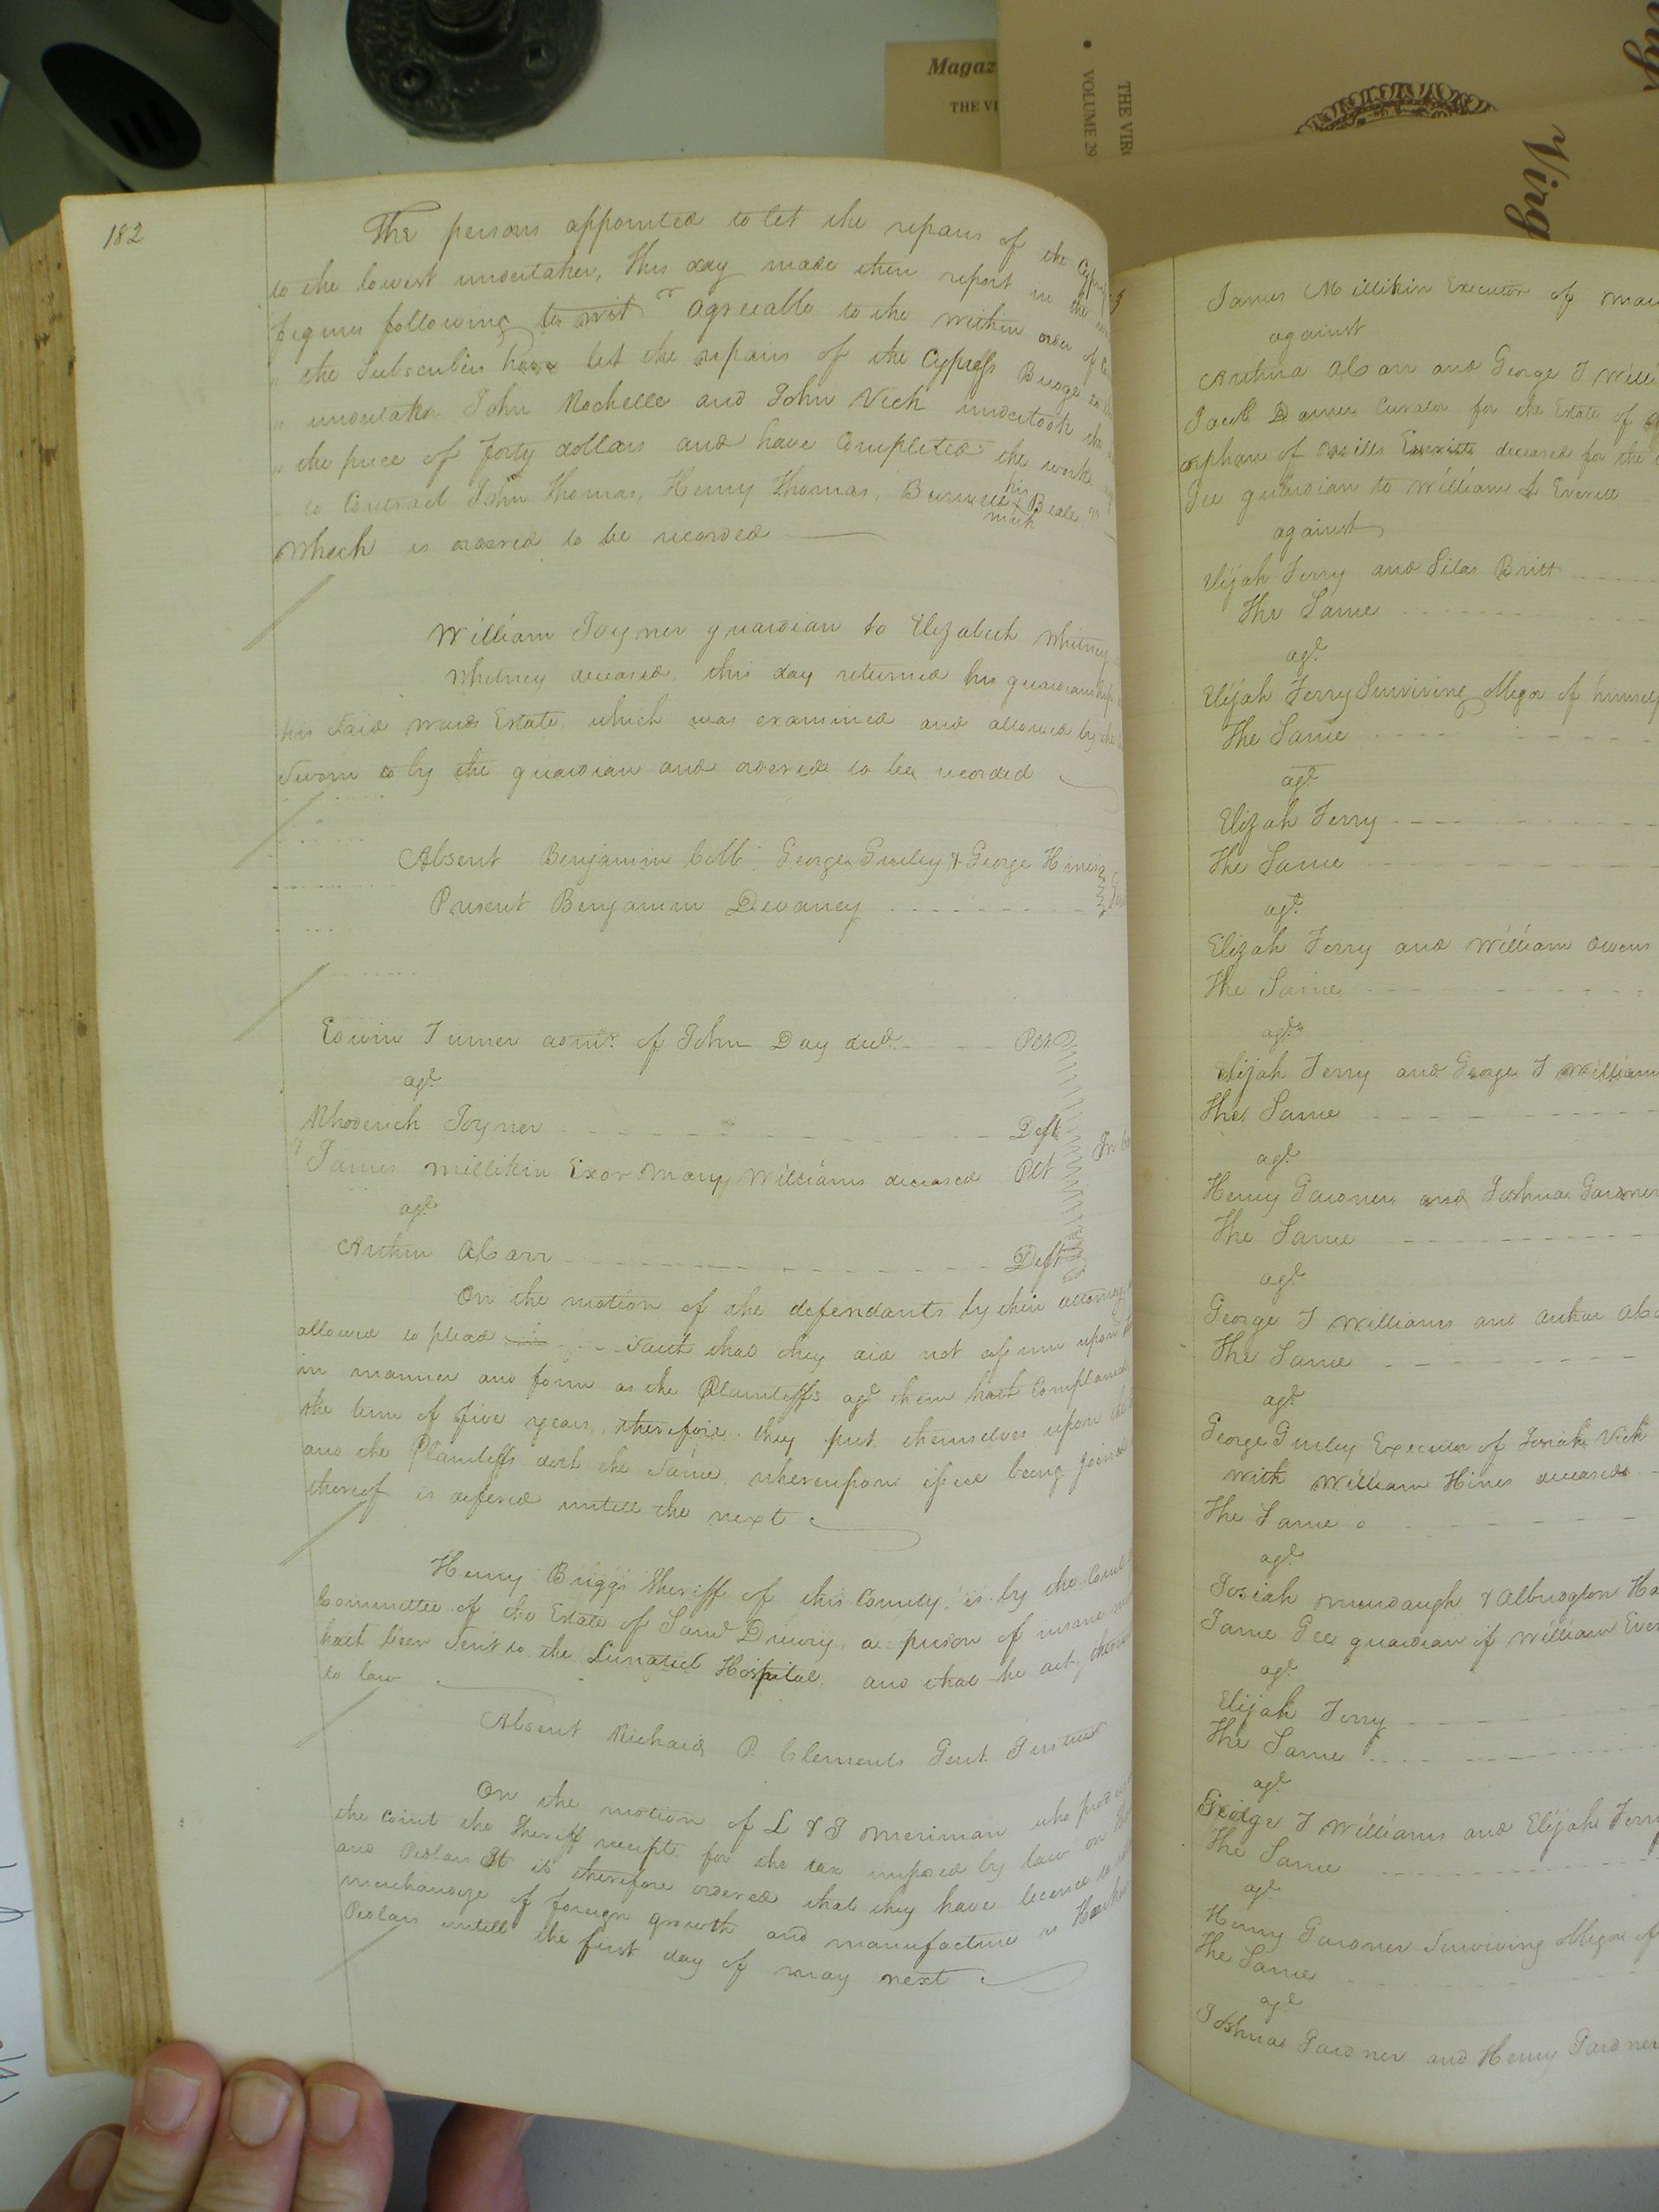 Magaz
THE VI
THE VIR
VOLUME 29
Virg
182
The persons appointed to let the repairs of the Cypress
to the lowest undertaker, This day made their report in the
figures following to wit agreeable to the within order of
the Subscribers have let the repairs of the Cypress Bridge to
undertaker John Rochelle and John Vick undertook the
the price of forty dollars and have Completed the work
to Contract John Thomas, Henry Thomas, Burwell his Beale
mark
Which is ordered to be recorded
William Joyner guardian to Elizabeth Whitney
Whitney deceased this day returned his guardianship
his said wards Estate which was examined and allowed by the
Sworn to by the guardian and ordered to be recorded
Absent Benjamin Cobb, George Gurley & George Hines
Present Benjamin Devaney
Edwin Turner admr. of John Day decd. Plt
agt
Rhoderick Joyner Deft
James Millikin Exor Mary Williams deceased Plt
agt
Arthur Abarr Deft
On the motion of the defendants by their attorney
allowed to plead Saith that they did not assume upon
in manner and form as the Plaintiffs agt them hath Complained
the term of five years, therefore they put themselves upon the
and the Plaintiffs doth the Same, whereupon issue being joined
thereof is defered untill the next
Henry Briggs Sheriff of this County, is by the Court
Committee of the Estate of Saml Drury, a person of insane
hath been Sent to the Lunatick Hospital, and that he act
to law
Absent Richard P Clements Gent Justice
On the motion of L & J Merriman who
the Court the Sheriff receipt for the tax imposed by law on
and Pedlars It is therefore ordered that they have licence to
merchandize of foreign growth and manufacture as
Pedlars untill the first day of may next
James Millikin Executor of
against
Arthur Abarr and George T
Jacob Darden Curator for the Estate of
orphan of deceased for the
Gee guardian to William Everitt
against
Elijah Ferry and Silas Britt
The Same
agt
Elijah Ferry Surviving Obligor of himself
The Same
agt
Elijah Ferry
The Same
agt
Elijah Ferry and William Owens
The Same
agt
Elijah Ferry and George T William
The Same
agt
Henry Gardner and Joshua Gardner
The Same
agt
George T Williams and Arthur
The Same
agt
George Gurley Executor of Josiah Vick
with William Hines deceased
The Same
agt
Josiah Murdaugh & Albridgton
Jame Gee guardian of William
agt
Elijah Ferry
The Same
agt
George T Williams and Elijah Ferry
The Same
agt
Henry Gardner Surviving Obligor of
The Same
agt
Joshua Gardner and Henry Gardner